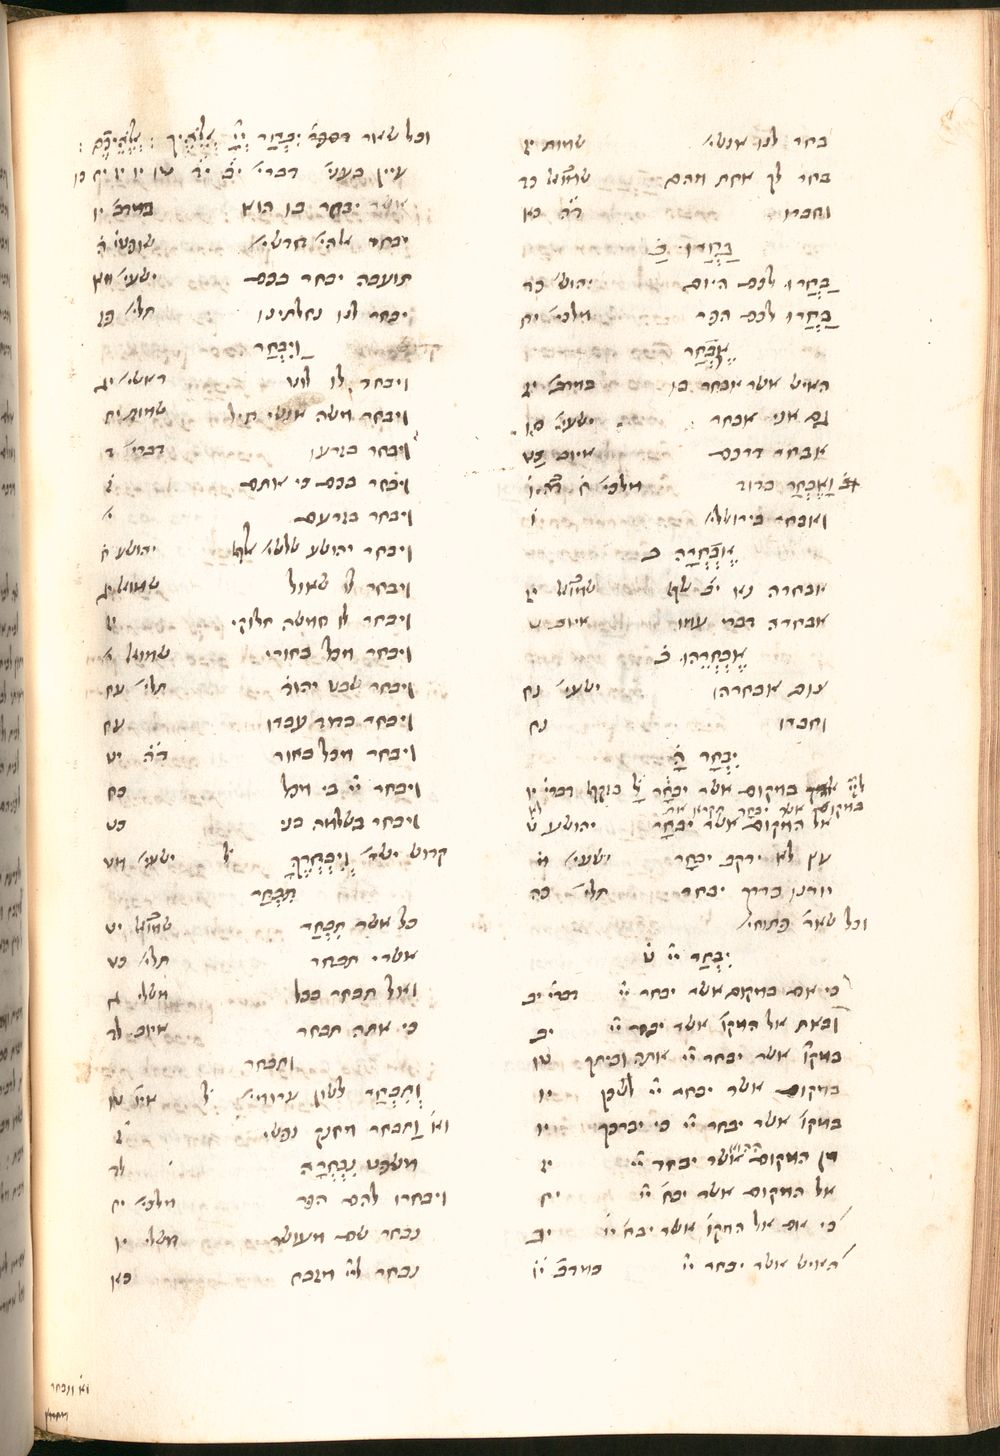 בחר לנו אנשי׳ שמות יז
בחר לך אחת מהם שמואל כד
וחברו דה כא
בַּחֲרוּ ב֗
בַּחֲרוּ לכם היום יהוש׳ כד
בַּחֲרוּ לכם הפר מלכי׳ יח
אֶבְחַר
האיש אשר אבחר בו במדב׳ יז
גם אני אבחר ישעי׳ סו
אבחר דרכם איוב כט
וָאֶבְחַר בדוד מלכי׳ ח
ואבחר בירושל׳ ו
אֶבְחֲרָה ב
אבחרה נא יב֗ אלף שמואל יז
אבחרה דברי עמו איוב ט
אֶבְחָרֵהוּ ב֗
צום אבחרהו ישעי׳ נח
וחברו נח
יִבְחָר ה֗
במקום אשר יבחר דברי׳ יו
אל המקום אשר יבחר יהושע ט
עץ לא ירקב יבחר ישעי׳ מ
יורנו בדרך יבחר תלי׳ כה
וכל שאר֗ פתוחי׳
יִבְחַר יי֗ ט֗
כי אם במקום אשר יבחר יי֗ דברי֗ יב
ובאת אל המקו׳ אשר יבחר יי֗ יב
במקו׳ אשר יבחר יי֗ אתה וביתך טו
במקום אשר יבחר יי֗ לשכן יו
במקו׳ אשר יבחר יי֗ כי יברכך יו
מן המקום ההוא אשר יבחר יי֗ יז
אל המקום אשר יבח׳ יי֗ יח
כי אם אל המקו׳ אשר יבח׳ יי֗ יב
האיש אשר יבחר יי֗ במדב׳ יו
וכל שאר דספר֗ יִבְחַר יי֗ אֱלֹהֶיךָ : אֱלֹהֵיכֶם :
עיין בעני׳ דברי׳ יב֗ יד֗ טו יו יז יח כו
אשר יבחר בו הוא במדב׳ יו
יבחר אלהי׳ חדשי׳ שופטי֗ ה֗
תועבה יבחר בכם ישעי׳ מא
יבחר לנו נחלתינו תלי׳ מז
וַיִבְחַר
ויבחר לו לוט ראשי׳ יג
ויבחר משה אנשי חיל שמות יח
ויבחר בזרעו דברי׳ ד
ויבחר בכם כי אתם ז֗
ויבחר בזרעם י׳
ויבחר יהושע שלשי׳ אלף יהושע ח
ויבחר לו שאול שמואל יג
ויבחר לו חמשה חלוקי יז
ויבחר מכל בחורי שמואל
ויבחר שבט יהוד֗ תלי׳ עח
ויבחר בדוד עבדו עח
ויבחר מכל בחור דה֗ יט
ויבחר יי֗ בי מכל כח
ויבחר בשלמה בני כט
קדוש ישר׳ וַיִבְחָרֶךָּ ל֗ ישעי׳ מט
תִּבְחַר
כל אשר תִבְחַר שמואל יט
אשרי תבחר תלי׳ סה
ואל תבחר בכל משלי ג
כי אתה תבחר איוב לד
ותבחר
וְתִבְחַר לשון ערומי׳ ל֗ איו֗ טו
וא֗ וַתִבחר מחנק נפשי ז֗
משפט נִבְחֲרָה לד
ויבחרו להם הפר מלכי׳ יח
נבחר שם מעושר משלי
נבחר ליי֗ מזבח כא
וא֗ ונבחר